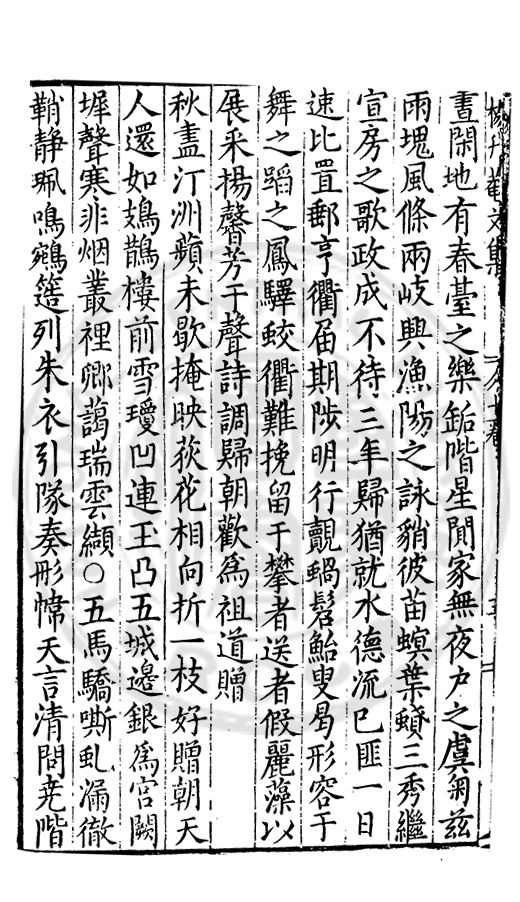 晝閑地有春臺之樂銗階星閒家無夜戶之虞匊兹
兩塊風條兩岐興漁陽之詠豿彼苗螟葉蟘三秀繼
宣房之歌政成不待三年歸猶就水德流已匪一日
速比置郵亨衢届期陟明行觀蝸髫鮐叟曷形容于
舞之蹈之鳳驛蛟衢難挽留于攀者送者假麗藻以
展采揚馨芳于聲詩調歸朝歡為祖道贈
秋盡汀洲蘋未歇掩映荻花相向折一枝好贈朝天
人還如鳷鵲樓前雪瓊凹連王凸五城邊銀為宮闕
墀聲寒非烟叢裡卿藹瑞雲纈○五馬驕嘶虬漏徹
鞘静珮鳴鵷簉列朱衣引隊奏彤幃天言清問堯階